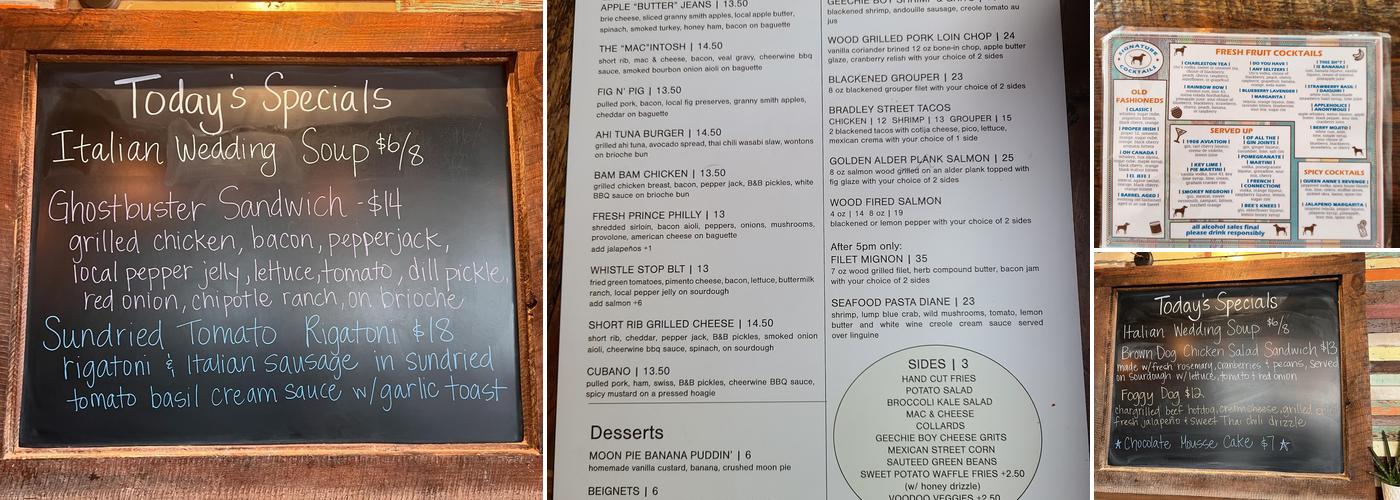 Today's Specials
Italian Wedding Soup $6/8
Ghostbuster Sandwich - $14
grilled chicken, bacon, pepperjack,
local pepper jelly, lettuce, tomato, dill pickle,
red onion, chipotle ranch, on brioche
Sundried Tomato Rigatoni $18
rigatoni & Italian sausage in sundried
tomato basil cream sauce w/garlic toast
APPLE "BUTTER" JEANS | 13.50
brie cheese, sliced granny smith apples, local apple butter,
spinach, smoked turkey, honey ham, bacon on baguette
THE "MAC"INTOSH | 14.50
short rib, mac & cheese, bacon, veal gravy, cheerwine bbq
sauce, smoked bourbon onion aioli on baguette
FIG N' PIG | 13.50
pulled pork, bacon, local fig preserves, granny smith apples,
cheddar on baguette
AHI TUNA BURGER | 14.50
grilled ahi tuna, avocado spread, thai chili wasabi slaw, wontons
on brioche bun
BAM BAM CHICKEN | 13.50
grilled chicken breast, bacon, pepper jack, B&B pickles, white
BBQ sauce on brioche bun
FRESH PRINCE PHILLY | 13
shredded sirloin, bacon aioli, peppers, onions, mushrooms,
provolone, american cheese on baguette
add jalapeños +1
WHISTLE STOP BLT | 13
fried green tomatoes, pimento cheese, bacon, lettuce, buttermilk
ranch, local pepper jelly on sourdough
add salmon +6
SHORT RIB GRILLED CHEESE | 14.50
short rib, cheddar, pepper jack, B&B pickles, smoked onion
aioli, cheerwine bbq sauce, spinach, on sourdough
CUBANO | 13.50
pulled pork, ham, swiss, B&B pickles, cheerwine BBQ sauce,
spicy mustard on a pressed hoagie
Desserts
MOON PIE BANANA PUDDIN' | 6
homemade vanilla custard, banana, crushed moon pie
BEIGNETS | 6
GEECHIE BOY SHRIMP & GRITS
blackened shrimp, andouille sausage, creole tomato au
jus
WOOD GRILLED PORK LOIN CHOP | 24
vanilla coriander brined 12 oz bone-in chop, apple butter
glaze, cranberry relish with your choice of 2 sides
BLACKENED GROUPER | 23
8 oz blackened grouper filet with your choice of 2 sides
BRADLEY STREET TACOS
CHICKEN | 12 SHRIMP | 13 GROUPER | 15
2 blackened tacos with cotija cheese, pico, lettuce,
mexican crema with your choice of 1 side
GOLDEN ALDER PLANK SALMON | 25
8 oz salmon wood grilled on an alder plank topped with
fig glaze with your choice of 2 sides
WOOD FIRED SALMON
4 oz | 14 8 oz | 19
blackened or lemon pepper with your choice of 2 sides
After 5pm only:
FILET MIGNON | 35
7 oz wood grilled filet, herb compound butter, bacon jam
with your choice of 2 sides
SEAFOOD PASTA DIANE | 23
shrimp, lump blue crab, wild mushrooms, tomato, lemon
butter and white wine creole cream sauce served
over linguine
SIDES | 3
HAND CUT FRIES
POTATO SALAD
BROCCOLI KALE SALAD
MAC & CHEESE
COLLARDS
GEECHIE BOY CHEESE GRITS
MEXICAN STREET CORN
SAUTEED GREEN BEANS
SWEET POTATO WAFFLE FRIES +2.50
(w/ honey drizzle)
VOODOO VEGGIES +2.50
SIGNATURE COCKTAILS
FRESH FRUIT COCKTAILS
| CHARLESTON TEA |
| RAINBOW ROW |
| DO YOU HAVE |
| ANY SELTZERS |
| BLUEBERRY LAVENDER |
| MARGARITA |
| THIS SH*T |
| IS BANANAS |
| STRAWBERRY BASIL |
| DAIQUIRI |
| APPLEHOLICS |
| ANONYMOUS |
| BERRY MOJITO |
OLD
FASHIONEDS
| CLASSIC |
| PROPER IRISH |
| OH CANADA |
| EL JEFE |
| BARREL AGED |
SERVED UP
| 1908 AVIATION |
| KEY LIME |
| PIE MARTINI |
| SMOKEY NEGRONI |
| OF ALL THE |
| GIN JOINTS |
| POMEGRANATE |
| MARTINI |
| FRENCH |
| CONNECTION |
| BEE'S KNEES |
SPICY COCKTAILS
| QUEEN ANNE'S REVENGE |
| JALAPENO MARGARITA |
all alcohol sales final
please drink responsibly
Today's Specials
Italian Wedding Soup $6/8
Brown Dog Chicken Salad Sandwich $13
made w/fresh rosemary, cranberries & pecans, served
on sourdough w/lettuce, tomato & red onion
Foggy Dog $12
chargrilled beef hotdog, cream cheese, grilled or
fresh jalapeño & sweet Thai chili drizzle
★ Chocolate Mousse Cake $7 ★